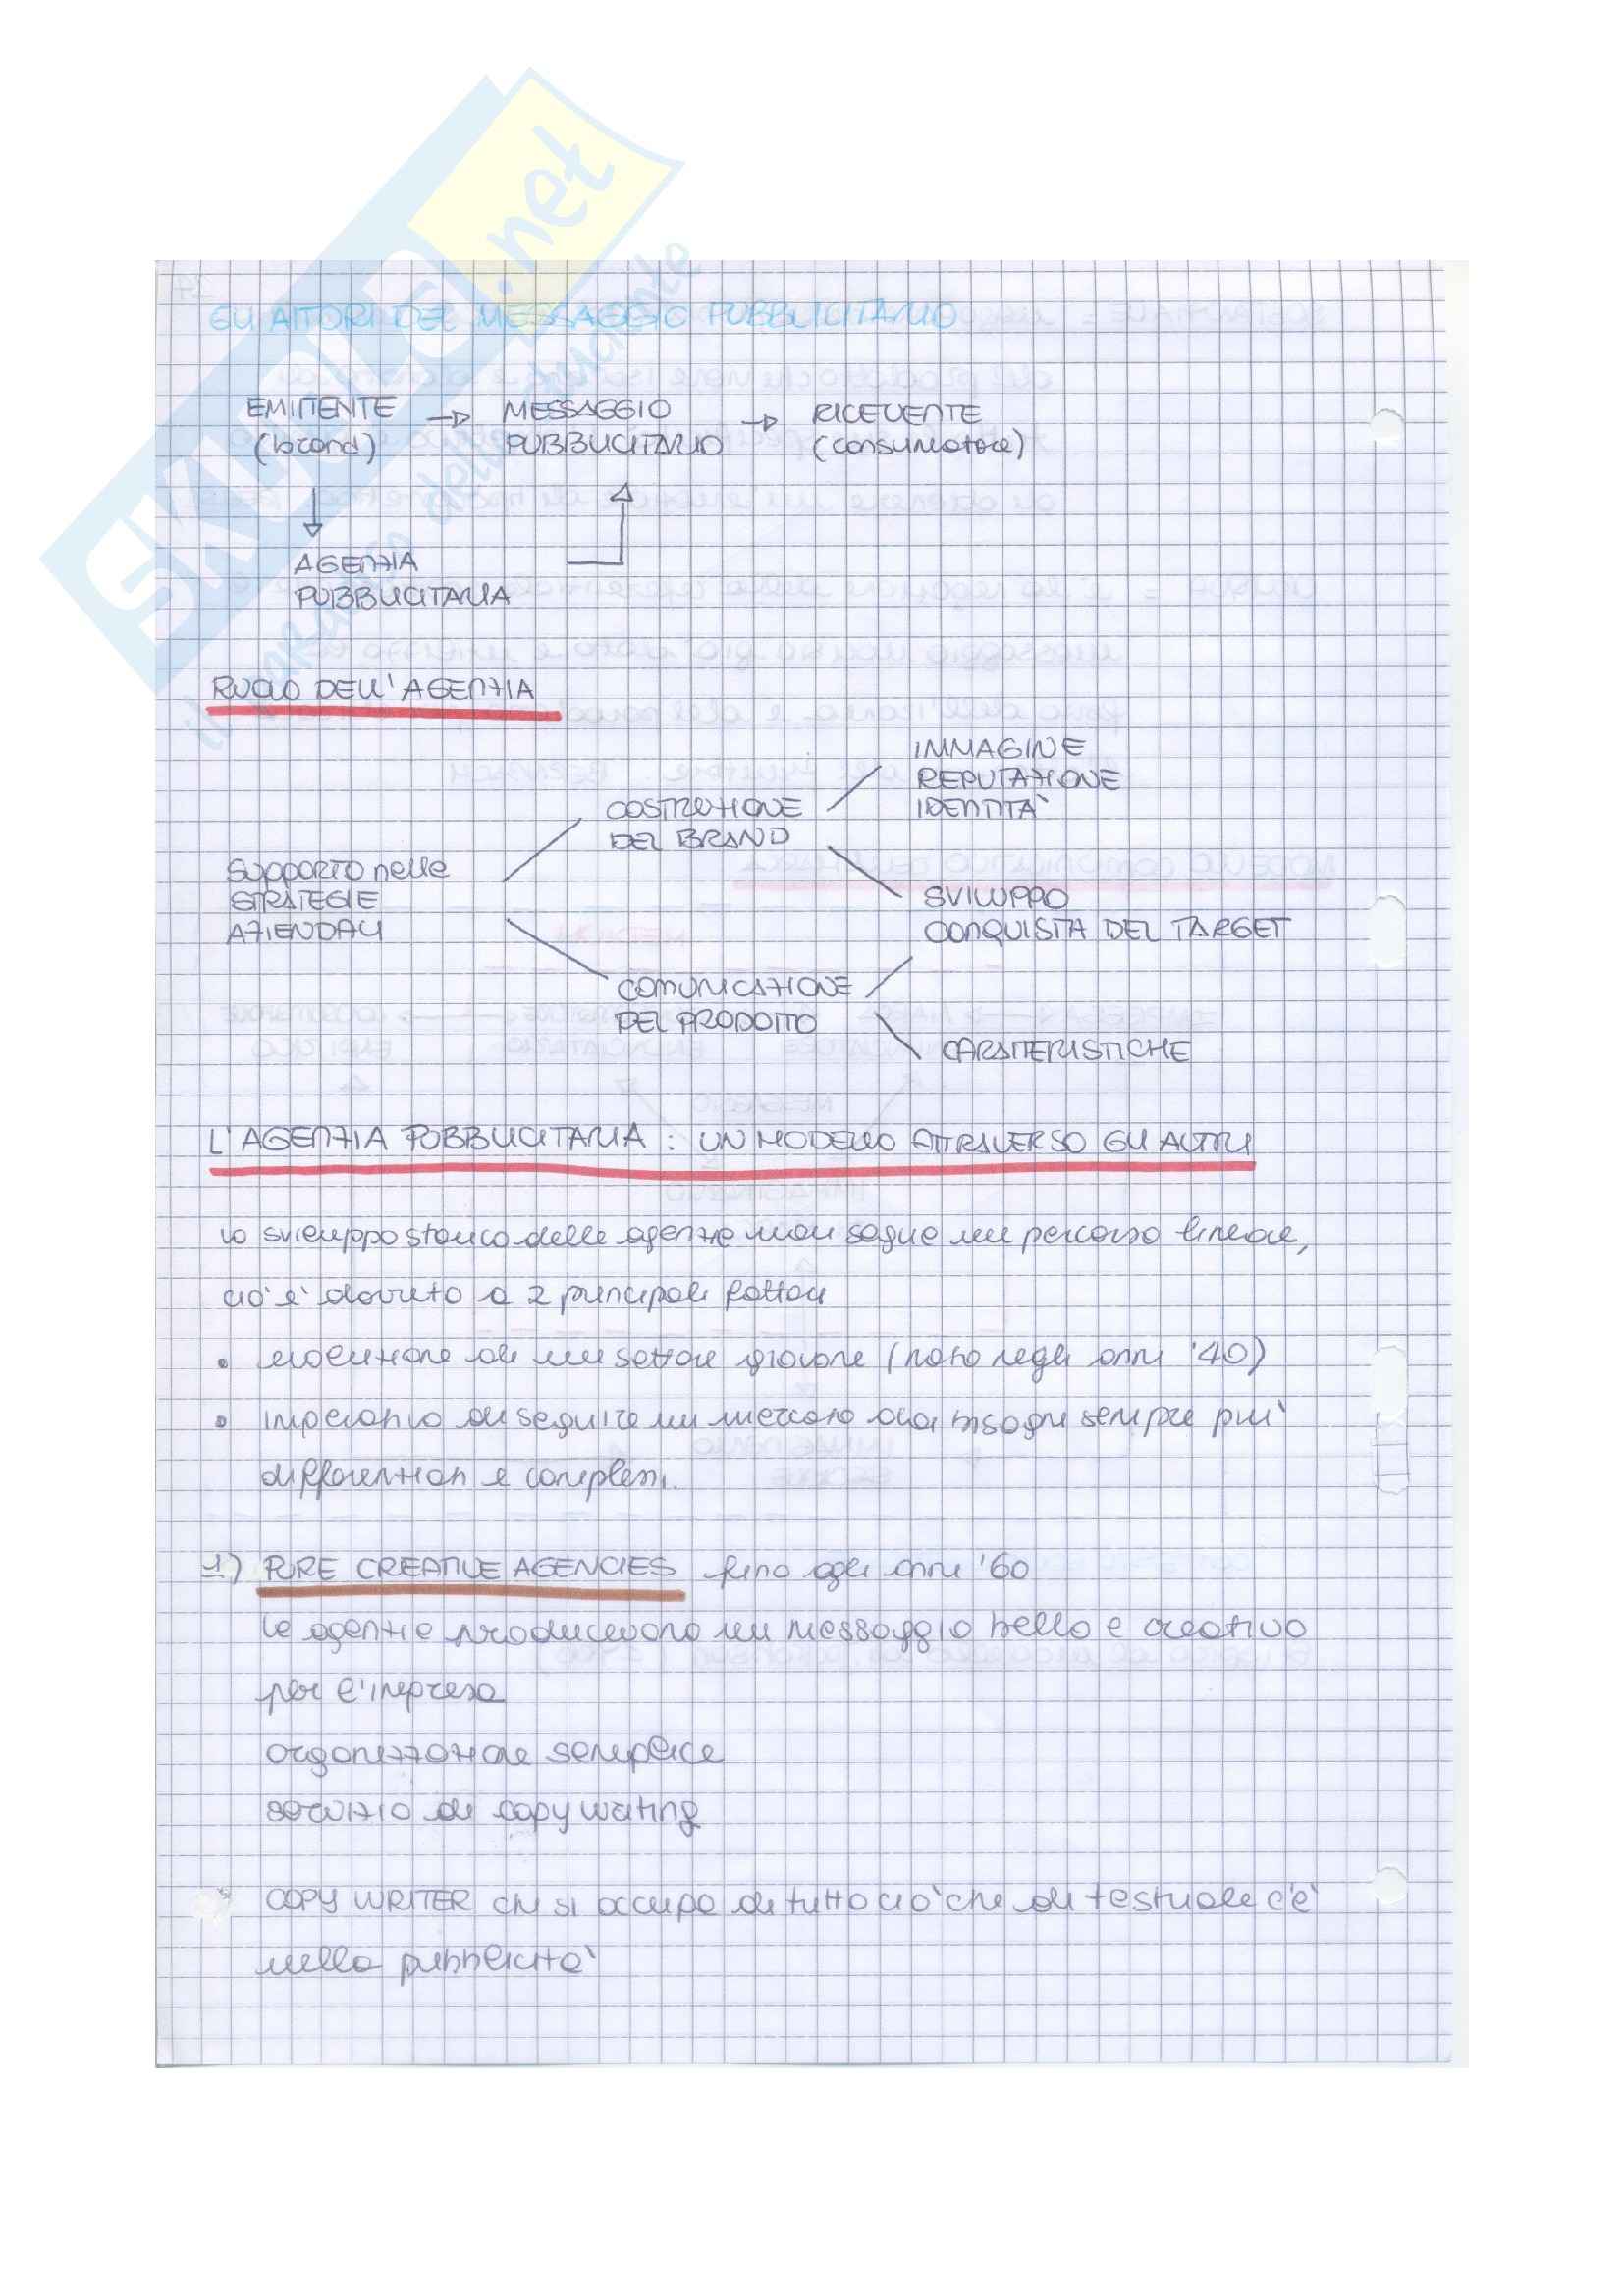 SKUOLA.net
il paradiso dello studente
GLI ATTORI DEL MESSAGGIO PUBBLICITARIO
EMITTENTE → MESSAGGIO → RICEVENTE
(brand) PUBBLICITARIO (consumatore)
AGENZIA
PUBBLICITARIA
RUOLO DELL'AGENZIA
IMMAGINE
REPUTAZIONE
IDENTITÀ
COSTRUZIONE
DEL BRAND
SUPPORTO nelle
STRATEGIE
AZIENDALI
SVILUPPO
CONQUISTA DEL TARGET
COMUNICAZIONE
DEL PRODOTTO
CARATTERISTICHE
L'AGENZIA PUBBLICITARIA: UN MODELLO ATTRAVERSO GLI ALTRI
Lo sviluppo storico delle agenzie non segue un percorso lineare,
ciò è dovuto a 2 principali fattori
• evoluzione di un settore giovane (nato negli anni '40)
• imperativo di seguire un mercato dai bisogni sempre più
differenziati e complessi.
1) PURE CREATIVE AGENCIES fino agli anni '60
le agenzie producevano un messaggio bello e creativo
per l'impresa
organizzazione semplice
servizio di copy writing
COPY WRITER chi si occupa di tutto ciò che di testuale c'è
nella pubblicità